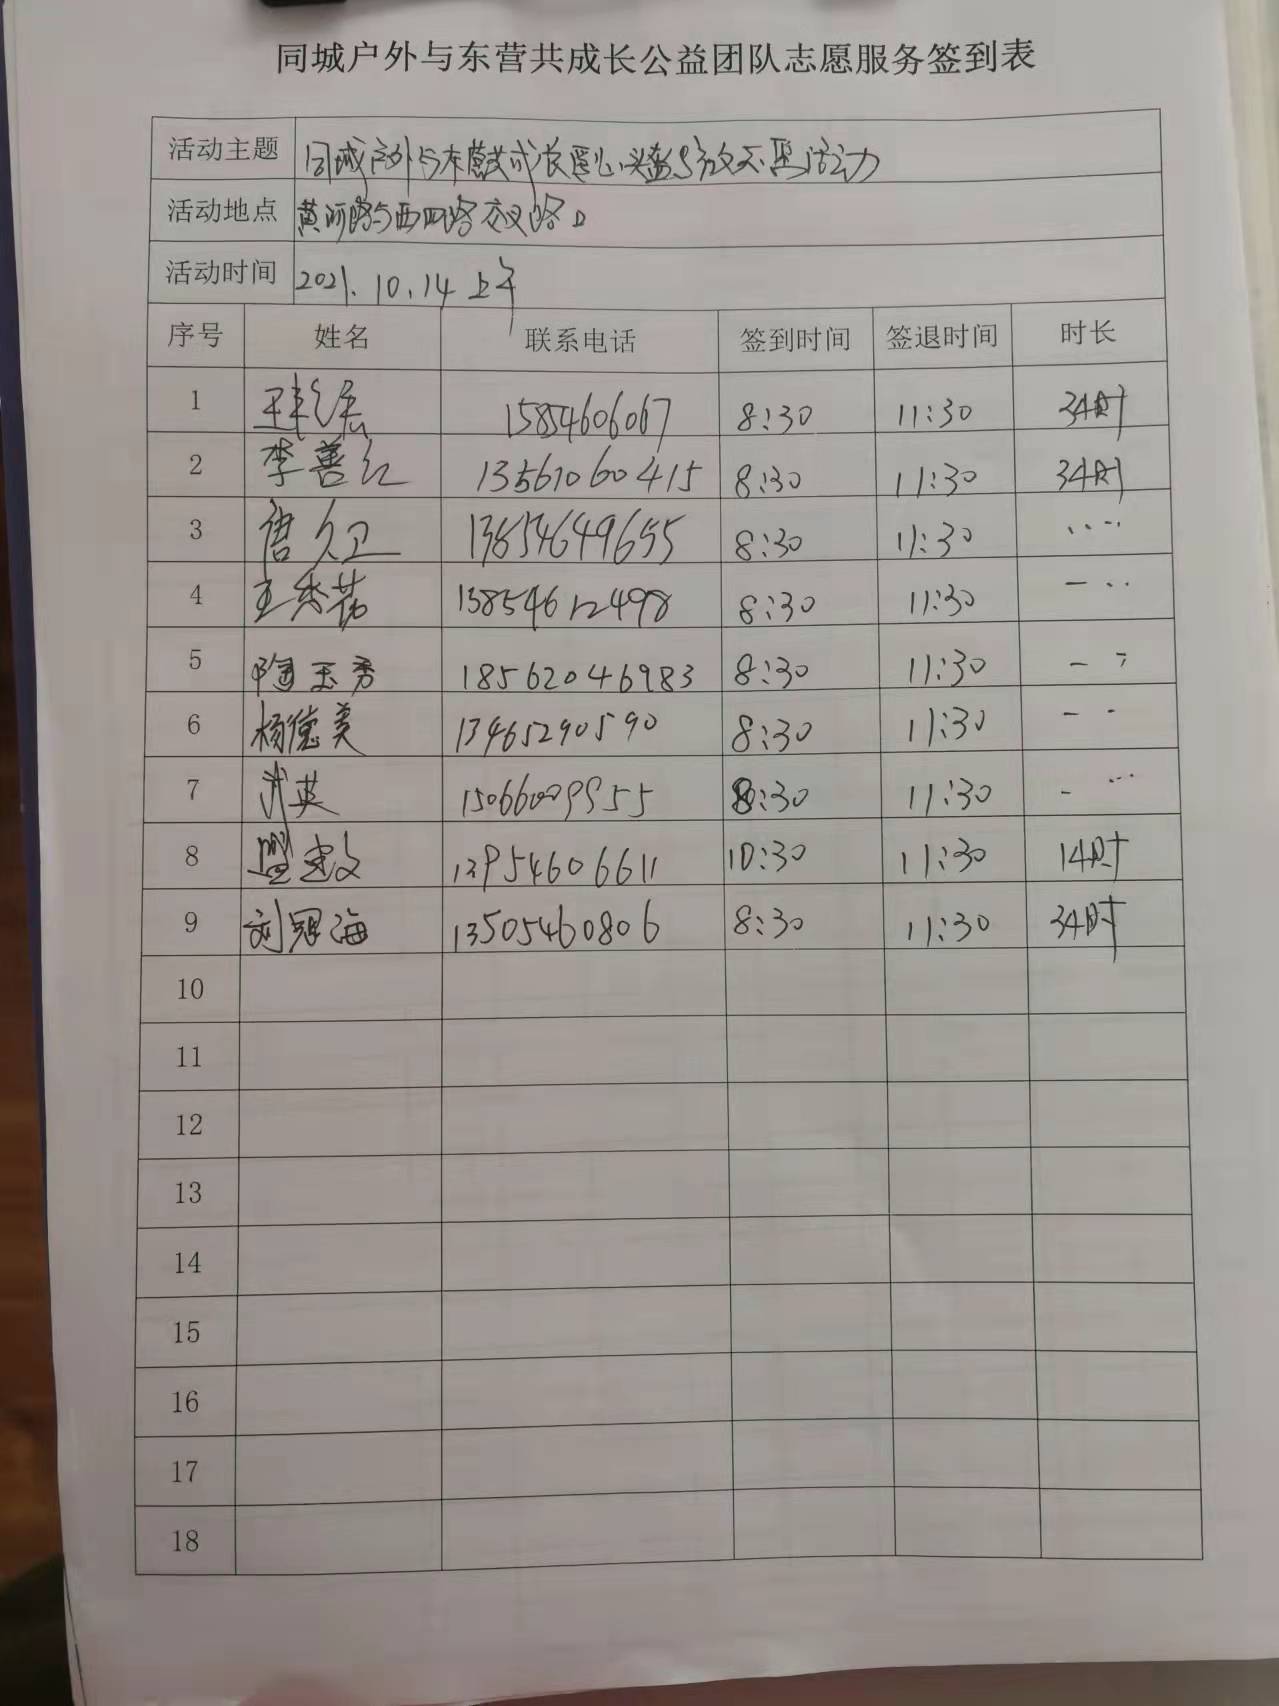 同城户外与东营共成长公益团队志愿服务签到表
活动主题 同城户外与东营共成长爱心头盔与交不累活动
活动地点 黄河路与西四路交叉路口
活动时间 2021.10.14 上午
序号 姓名 联系电话 签到时间 签退时间 时长
1 15854606067 8:30 11:30 3小时
2 李善红 13561060415 8:30 11:30 3小时
3 唐久卫 13654649655 8:30 11:30 ····
4 王秀茹 13854612498 8:30 11:30 - ··
5 陶玉秀 18562046983 8:30 11:30 - -
6 杨德美 13465290590 8:30 11:30 - -
7 武英 15066009955 8:30 11:30 - ···
8 盟建文 13954606611 10:30 11:30 1小时
9 刘冠海 13505460806 8:30 11:30 3小时
10
11
12
13
14
15
16
17
18